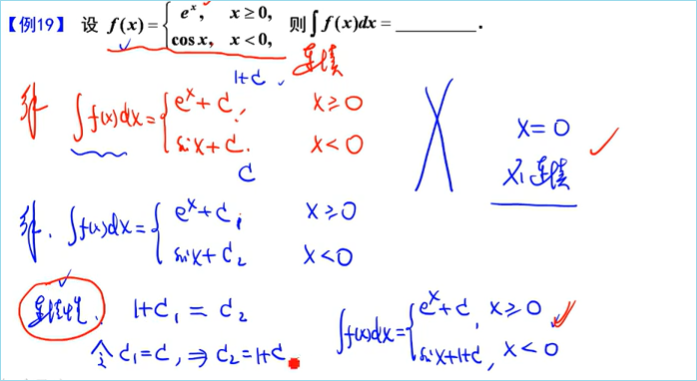 【例19】 设 f(x) = { e^x, x ≥ 0, cos x, x < 0, 则 ∫ f(x)dx = ________ .
连续
1+C
解 ∫f(x)dx = { e^x + C, x ≥ 0
sin x + C. x < 0
C
x = 0
不连续
解. ∫f(x)dx = { e^x + C₁ x ≥ 0
sin x + C₂ x < 0
连续性. 1 + C₁ = C₂
令 C₁ = C, ⇒ C₂ = 1 + C.
∫f(x)dx = { e^x + C, x ≥ 0
sin x + 1 + C, x < 0